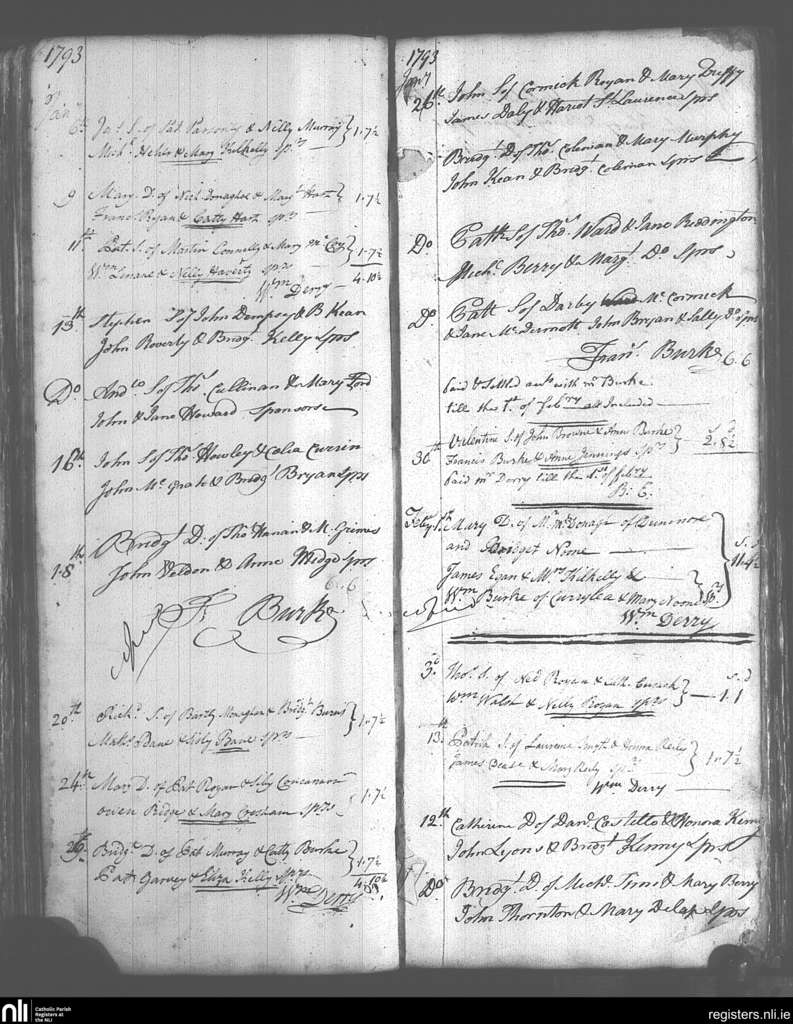 1793
Jany
6th Jas. S. of Pat Parsons & Nelly Murray } 1.7½
Mich. & Mary Kilkelly Sprs
9 Mary D. of Ned Donaghoe & Mary Hart } 1.7½
Frans Ryan & Catty Hart sprs
11th Pat. S. of Martin Connolly & Mary } 1.7½
Wm Linane & Nelly Haverty sprs 4.10½
Wm Derry
13th Stephen S of John Dempsey & B Kean
John Roverty & Bridgt. Kelly Sprs
Do Andw S of Thos. Cullinan & Mary Ford
John & Jane Howard Sponsors
16th John S of Thos. Howley & Celia Currin
John Mc Grath & Bridgt Bryan Sprs
18th Bridgt D. of Thos Hanan & M. Grimes
John Veldon & Anne Midge Sprs
6.6
Fr Burke
20th Richd. S. of Bartly Monaghan & Bridgt. Burns } 1.7½
& Sibly Bane sprs
24th Mary D. of Pat Rogan & Sibly Concanon
Owen Ridge & Mary sprs 1.7½
26th Bridgt D. of Pat Murray & Catty Burke } 1.7½
Pat Garvey & Eliza Kelly sprs 4.10½
Wm Derry
1793
Jany
26th John S of Cormick Rogan & Mary Duffy
James Daly & Hariot St Laurence Sprs
Bridgt. D of Thos. Coleman & Mary Murphy
John Kean & Bridgt. Coleman Sprs
Do Patk S of Thos. Ward & Jane Reddington
Michl. Berry & Margt. Do Sprs
Do Patt S of Darby Ward Mc Cormick
& Jane Mc Dermott John Bryan & Sally Do Sprs
Frans. Burke 6.6
Paid & Settled with Mr Burke
till the 1st of Febry all Included
30th Valentine S. of John Browne & Anne Burke } s d
Francis Burke & Anne Jennings sprs 2.8½
Paid Mr Derry till the 1st of febry
B. E.
Feby 1st Mary D. of Mr McDonagh of Dunmore
and Bridget Noone s. d
James Egan & Mrs Kilkelly & 11.4½
Wm Burke of Currylea & Mary Noone
Wm Derry
3d Thos. S. of Ned Rogan & s. d
Wm Walsh & Nelly Rogan sprs 1.1
13th Patrick S. of Laurence & Honora Reily } 1.7½
James & Mary Reily sprs
Wm Derry
12th Catherine D of Danl. Costello & Honora Kenny
John Lyons & Bridgt Kenny Sprs
Do Bridgt. D. of Michl. & Mary Berry
John Thornton & Mary Delap Sprs
nli
Catholic Parish
Registers at
the NLI
registers.nli.ie